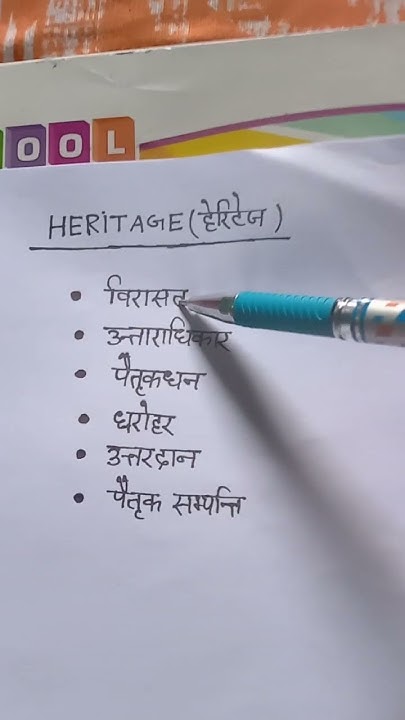 OOL
HERITAGE (हेरिटेज)
• विरासत
• उन्ताराधिकार
• पैतृकधन
• धरोहर
• उत्तरदान
• पैतृक सम्पन्ति